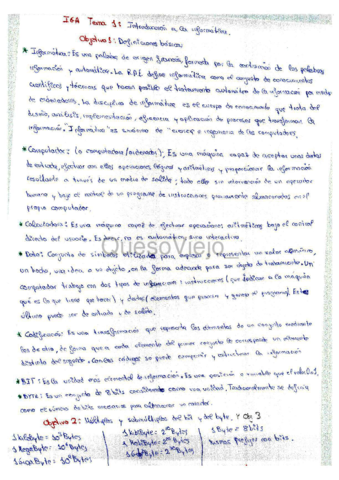 IGA Tema 1: Introducción a la informática.
Objetivo 1: Definiciones básicas
* Informática: Es una palabra de origen francés formada por la contracción de las palabras
información y automática. La R.A.E. define informática como el conjunto de conocimientos
científicos y técnicas que hacen posible el tratamiento automático de la información por medio
de ordenadores. La disciplina de informática es el cuerpo de conocimiento que trata del
diseño, análisis, implementación, eficiencia y aplicación de procesos que transforman la
información. "Informática" es sinónimo de "ciencia e ingeniería de los computadores".
* Computador: (o computadora/ordenador): Es una máquina capaz de aceptar unos datos
de entrada, efectuar con ellos operaciones lógicas y aritméticas y proporcionar la información
resultante a través de un medio de salida; todo ello sin intervención de un operador
humano y bajo el control de un programa de instrucciones previamente almacenado en el
propio computador.
* Calculadora: Es una máquina capaz de efectuar operaciones aritméticas bajo el control
directo del usuario. Es decir, no es automática, sino interactiva.
* Dato: Conjunto de símbolos utilizados para expresar o representar un valor numérico,
un hecho, una idea o un objeto, en la forma adecuada para ser objeto de tratamiento. Un
computador trabaja con dos tipos de información: instrucciones (que indican a la máquina
qué es lo que tiene que hacer) y datos (elementos que procesa y genera el programa). Este
último puede ser de entrada o de salida.
* Codificación: Es una transformación que representa los elementos de un conjunto mediante
los de otro, de forma que a cada elemento del primer conjunto le corresponde un elemento
distinto del segundo. Con los códigos se puede comprimir y estructurar la información
* BIT: Es la unidad más elemental de información. Es una posición o variable que el valor 0 o 1.
* BYTE: Es un conjunto de 8 bits considerado como una unidad. Tradicionalmente se definía
como el número de bits necesarios para almacenar un carácter.
Objetivo 2: Múltiplos y submúltiplos del bit y del byte. Y Obj 3
1 KiloByte = 10³ Bytes
1 MegaByte = 10⁶ Bytes
1 GigaByte = 10⁹ Bytes
1 KibiByte = 2¹⁰ Bytes
1 MebiByte = 2²⁰ Bytes
1 GibiByte = 2³⁰ Bytes
1 Byte = 8 bits
mismos prefijos con bits.
QuesoViejo